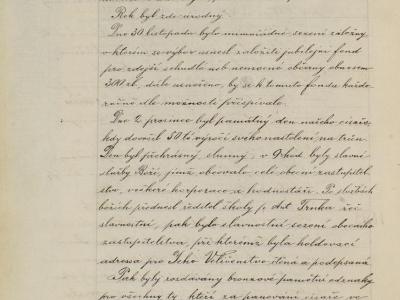 Rok byl zde úrodný.
Dne 30 listopadu bylo mimořádné sezení záložny,
v kterém se výbor usnesl založiti jubilejní fond
pro zdejší chudé neb nemocné občany obnosem
300 zl., dále usneseno, by se k tomuto fondu každo-
ročně dle možnosti přispívalo.
Dne 2 prosince byl památný den našeho císaře,
kdy dovršil 50té výročí svého nastolení na trůn.
Den byl překrásný slunný, v 9 hod byly slavné
služby Boží, jimž obcovalo celé obecní zastupitel-
stvo, veškeré korporace a hodnostáři. Po službách
božích přednesl ředitel školy p. Ant. Trnka řeč
slavnostní, pak bylo slavnostní sezení obecního
zastupitelstva, při kteremž byla holdovací
adressa pro Jeho Veličenstvo čtena a podepsána.
Pak byly rozdávány bronzové památní odznaky
pro všechny ty, kteří za panování císaře ve